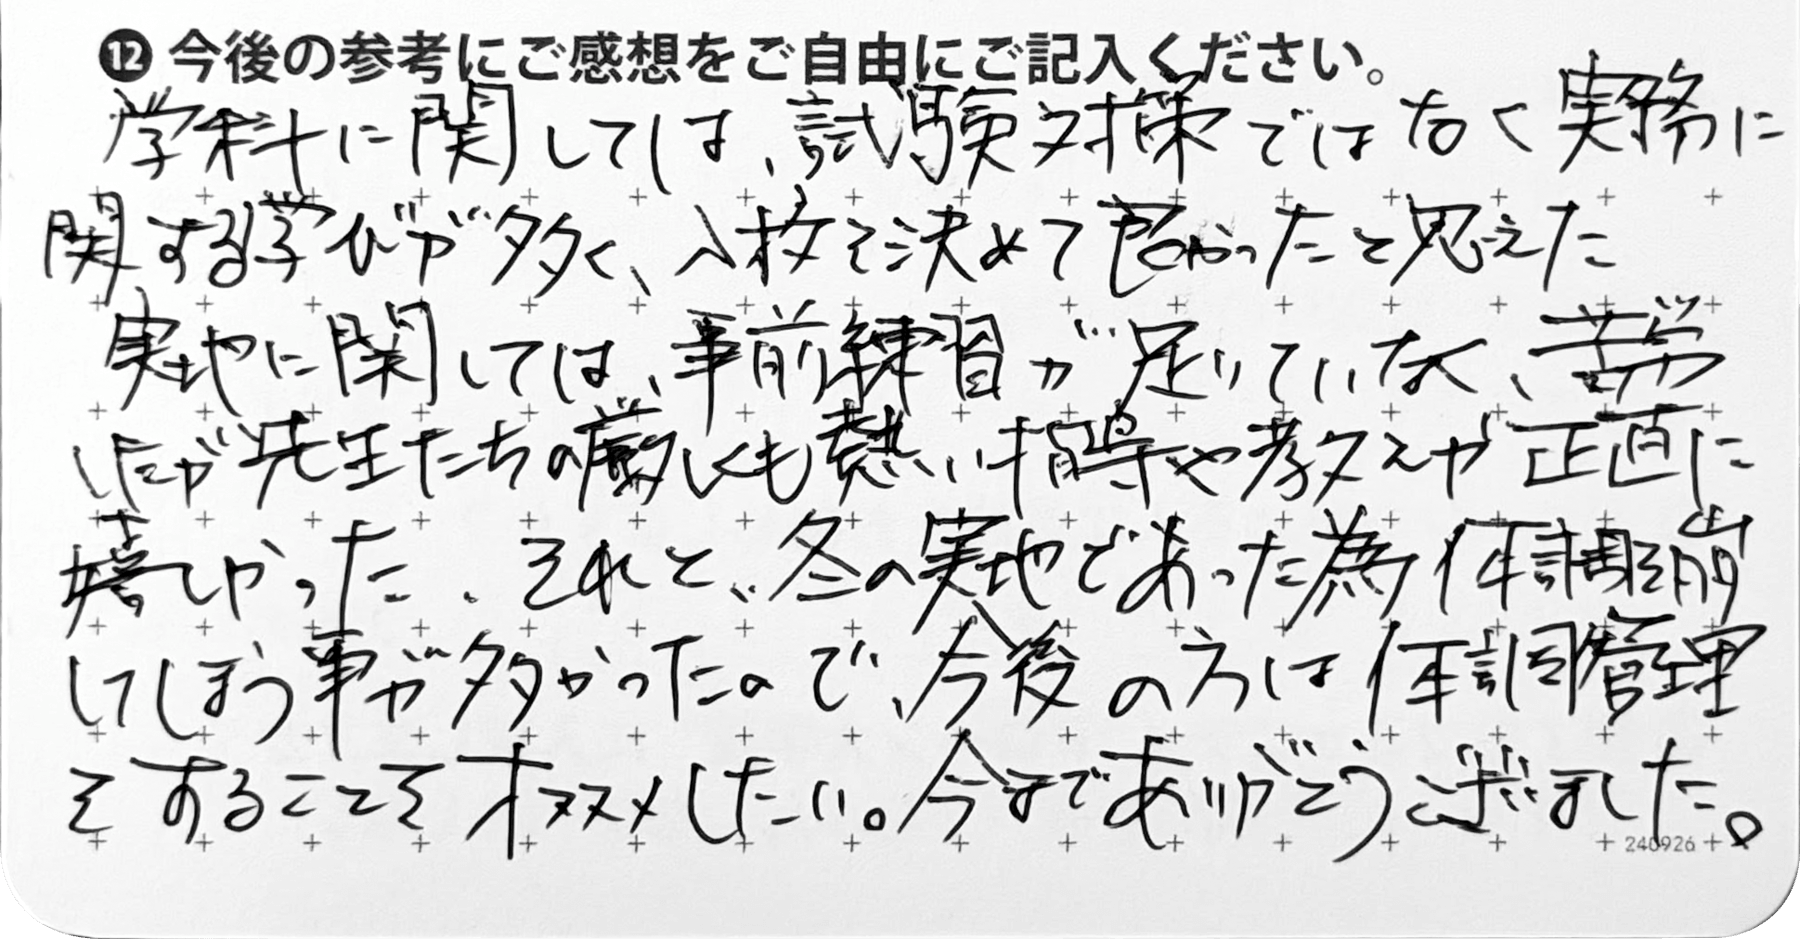 ⓬ 今後の参考にご感想をご自由にご記入ください。
学科に関しては、試験対策ではなく実務に
関する学びが多く、入校を決めて良かったと思えた
実地に関しては、事前練習が足りていなく、苦労
したが先生たちの厳しくも熱い指導や教えが正直に
嬉しかった。それと、冬の実地であった為体調を崩
してしまう事が多かったので、今後の方は体調管理
をすることをオススメしたい。今までありがとうございました。
240926